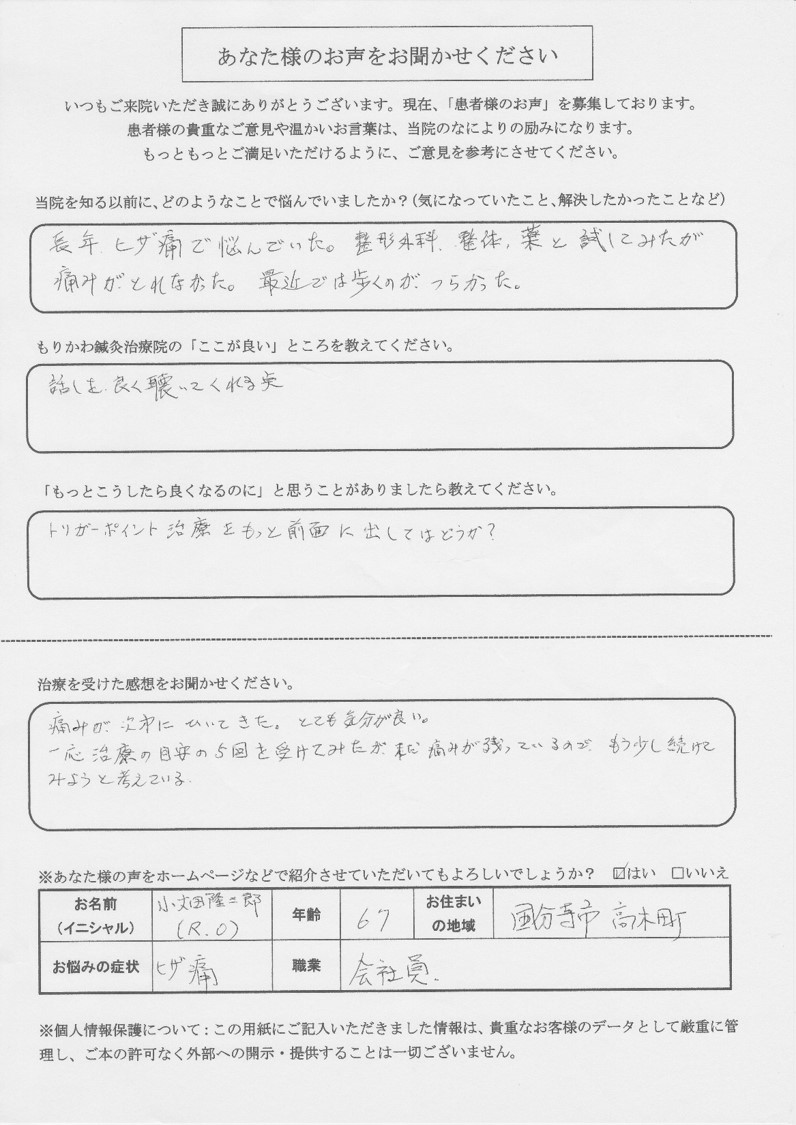 あなた様のお声をお聞かせください
いつもご来院いただき誠にありがとうございます。現在、「患者様のお声」を募集しております。
患者様の貴重なご意見や温かいお言葉は、当院のなによりの励みになります。
もっともっとご満足いただけるように、ご意見を参考にさせてください。
当院を知る以前に、どのようなことで悩んでいましたか？(気になっていたこと、解決したかったことなど)
長年、ヒザ痛で悩んでいた。整形外科、整体、薬と試してみたが
痛みがとれなかった。最近では歩くのがつらかった。
もりかわ鍼灸治療院の「ここが良い」ところを教えてください。
話しを良く聴いてくれる点
「もっとこうしたら良くなるのに」と思うことがありましたら教えてください。
トリガーポイント治療をもっと前面に出してはどうか?
治療を受けた感想をお聞かせください。
痛みが次第にひいてきた。とても気分が良い。
一応治療の目安の5回を受けてみたが、まだ痛みが残っているので、もう少し続けて
みようと考えている。
※あなた様の声をホームページなどで紹介させていただいてもよろしいでしょうか？ ☑はい □いいえ
お名前 小文田隆二郎 年齢 67 お住まい 国分寺市 高木町
(イニシャル) (R.O) の地域
お悩みの症状 ヒザ痛 職業 会社員.
※個人情報保護について：この用紙にご記入いただきました情報は、貴重なお客様のデータとして厳重に管
理し、ご本の許可なく外部への開示・提供することは一切ございません。